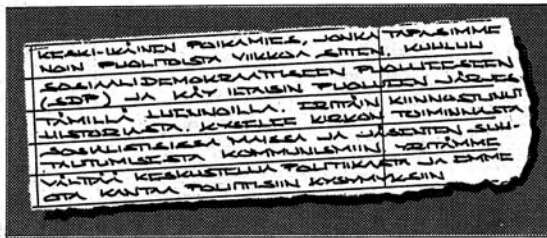 KESKI-IKÄINEN POIKAMIES, JONKA TAPASIMME
NOIN PUOLITOISTA VIIKKOA SITTEN. KUULUU
SOSIAALIDEMOKRAATTISEEN PUOLUEESEEN
(SDP) JA KÄY ILTAISIN PUOLUEEN JÄRJES
TÄMILLÄ LUENNOILLA. ERITTÄIN KIINNOSTUNUT
HISTORIASTA. KYSELEE KIRKON TOIMINNASTA
SOSIALISTISISSA MAISSA JA JÄSENTEN SUH-
TAUTUMISESTA KOMMUNISMIIN. YRITÄMME
VÄLTTÄÄ KESKUSTELUA POLITIIKASTA JA EMME
OTA KANTAA POLIITTISIIN KYSYMYKSIIN